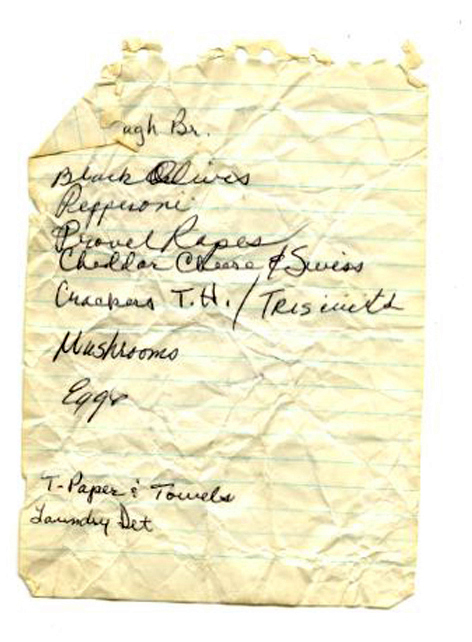 ugh Br.
Black Olives
Pepperoni
Provel Ropes
Cheddar Cheese & Swiss
Crackers T.H. / Triscuits
Mushrooms
Eggs
T-Paper & Towels
Laundry Det